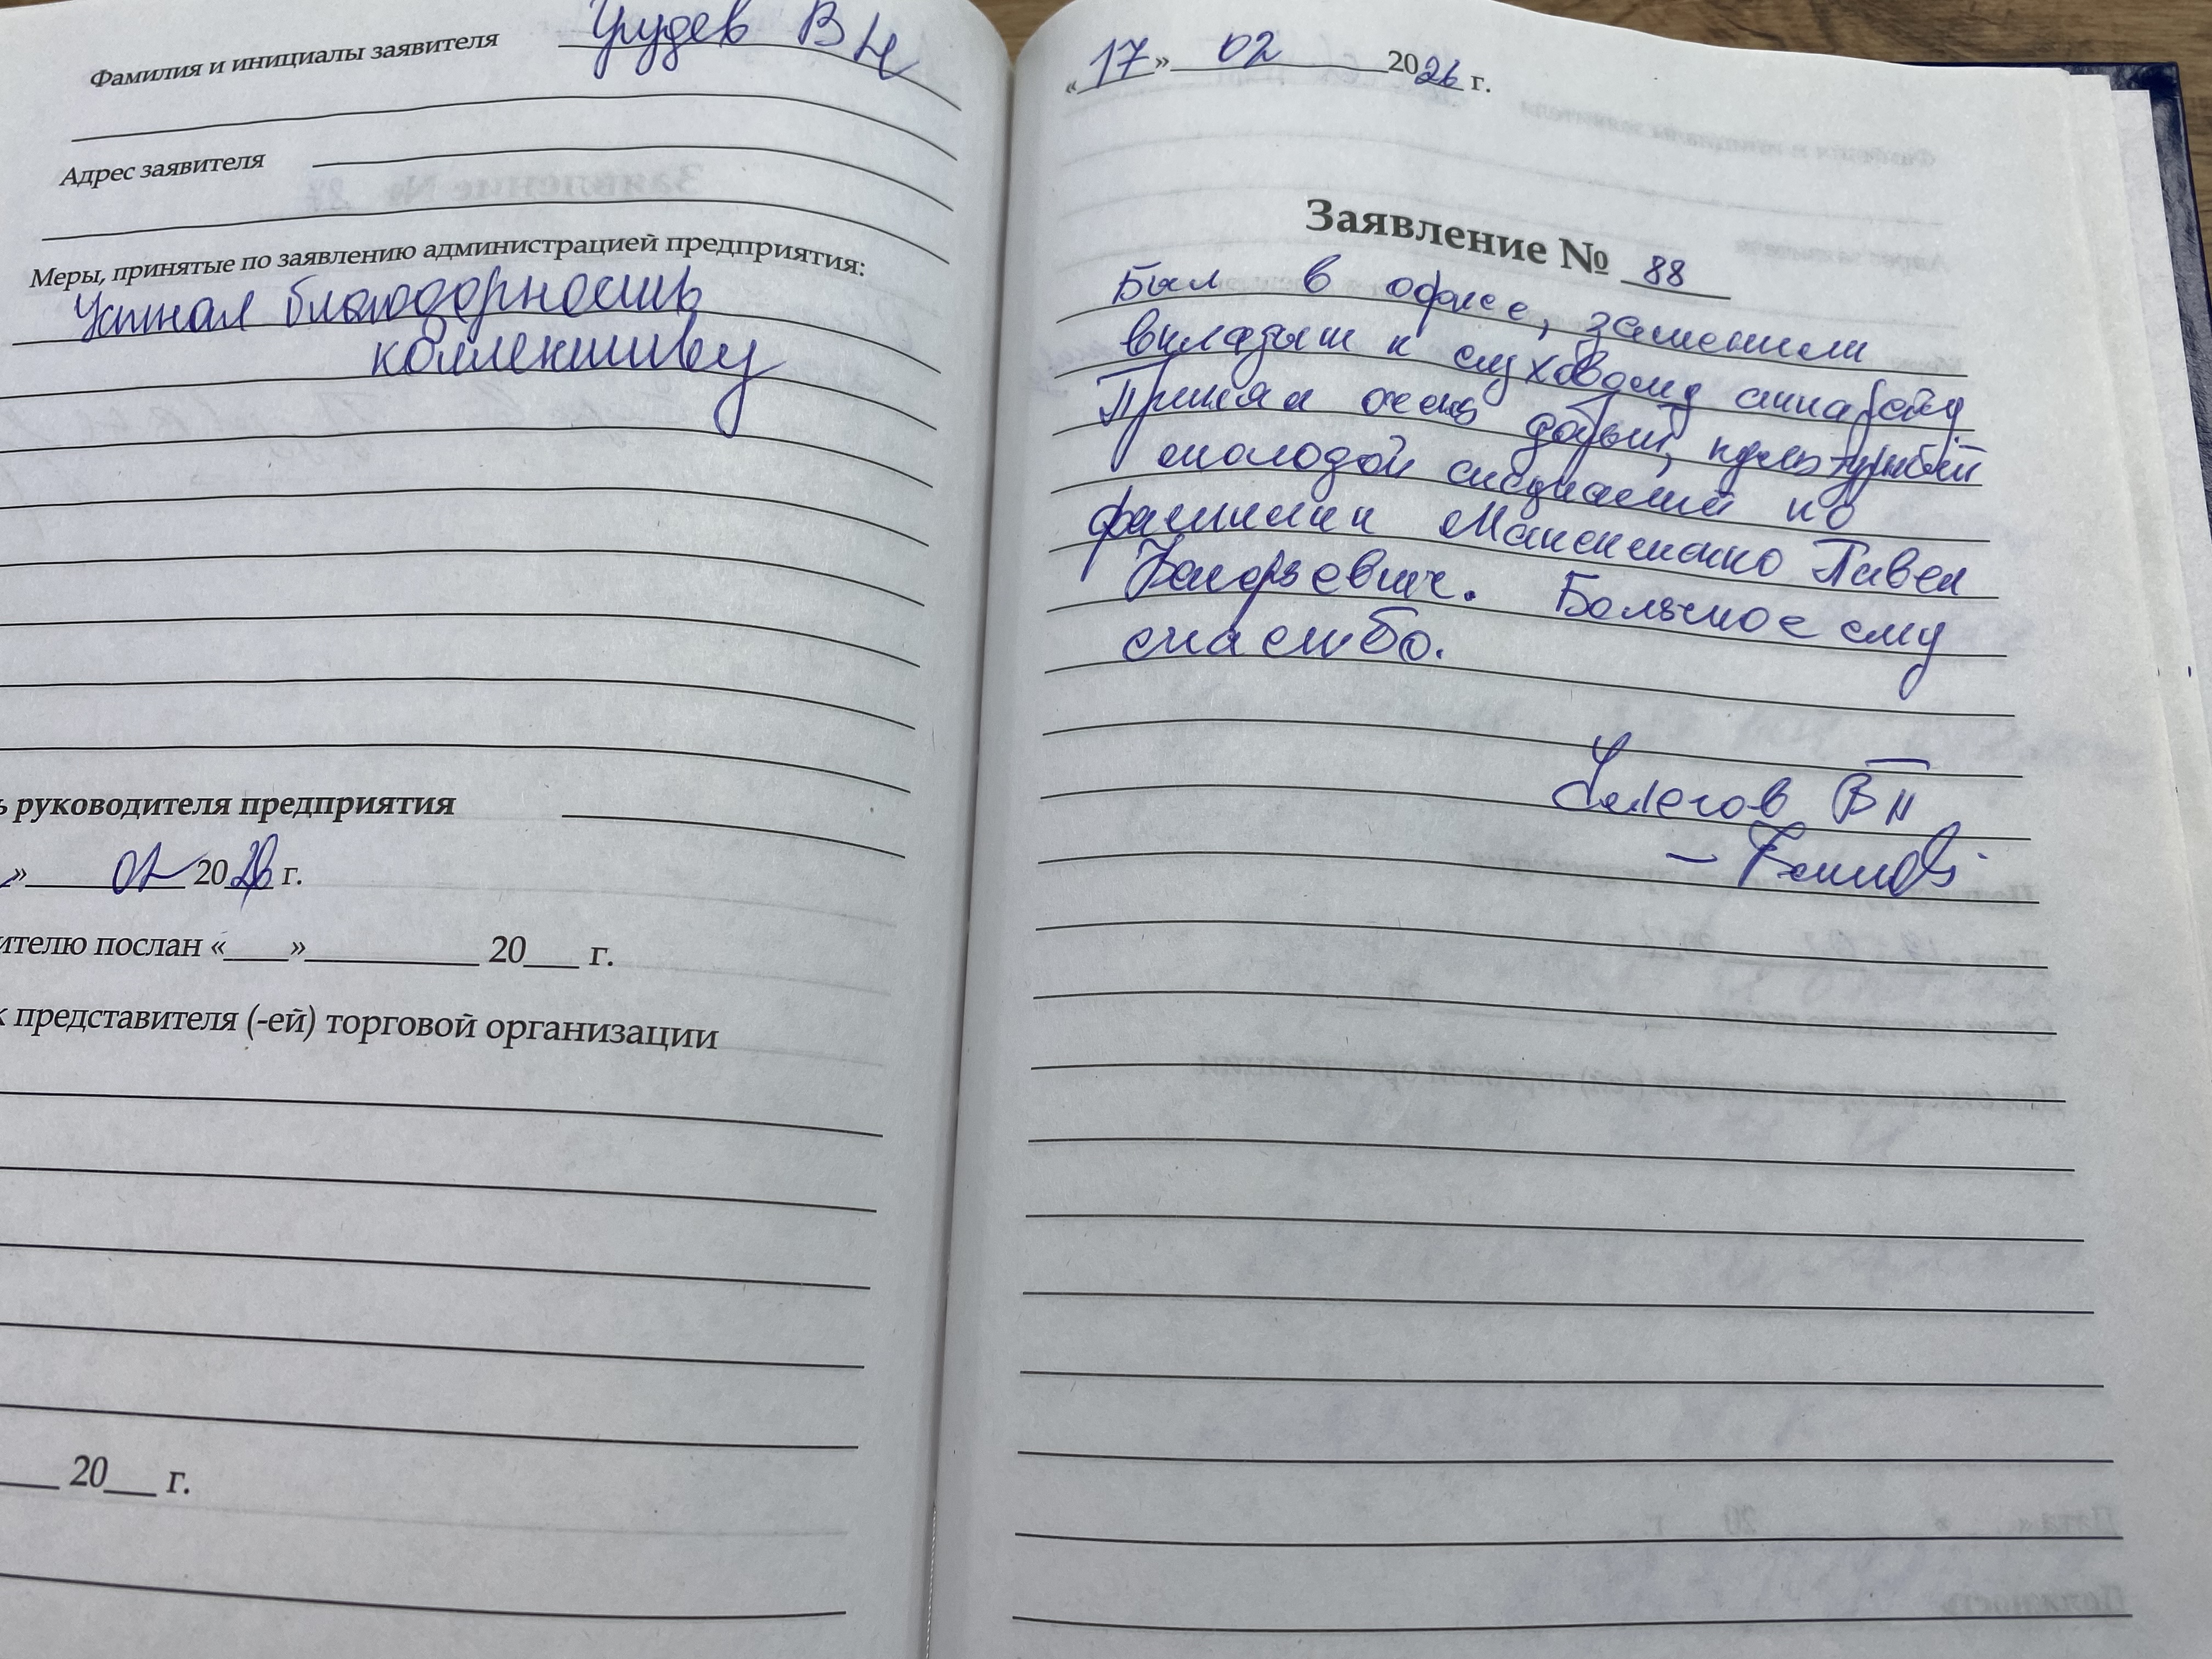 Фамилия и инициалы заявителя В Н
Адрес заявителя
Меры, принятые по заявлению администрацией предприятия:
Устная благодарность
коллективу
руководителя предприятия
» 02 2026 г.
ителю послан «___»__________ 20___ г.
представителя (-ей) торговой организации
20___ г.
«17» 02 2026 г.
Заявление № 88
Был в офисе, заменили
вкладыш к слуховому аппарату
Принял очень добрый, культурный
молодой специалист по
фамилии Максименко Павел
Большое ему
спасибо.